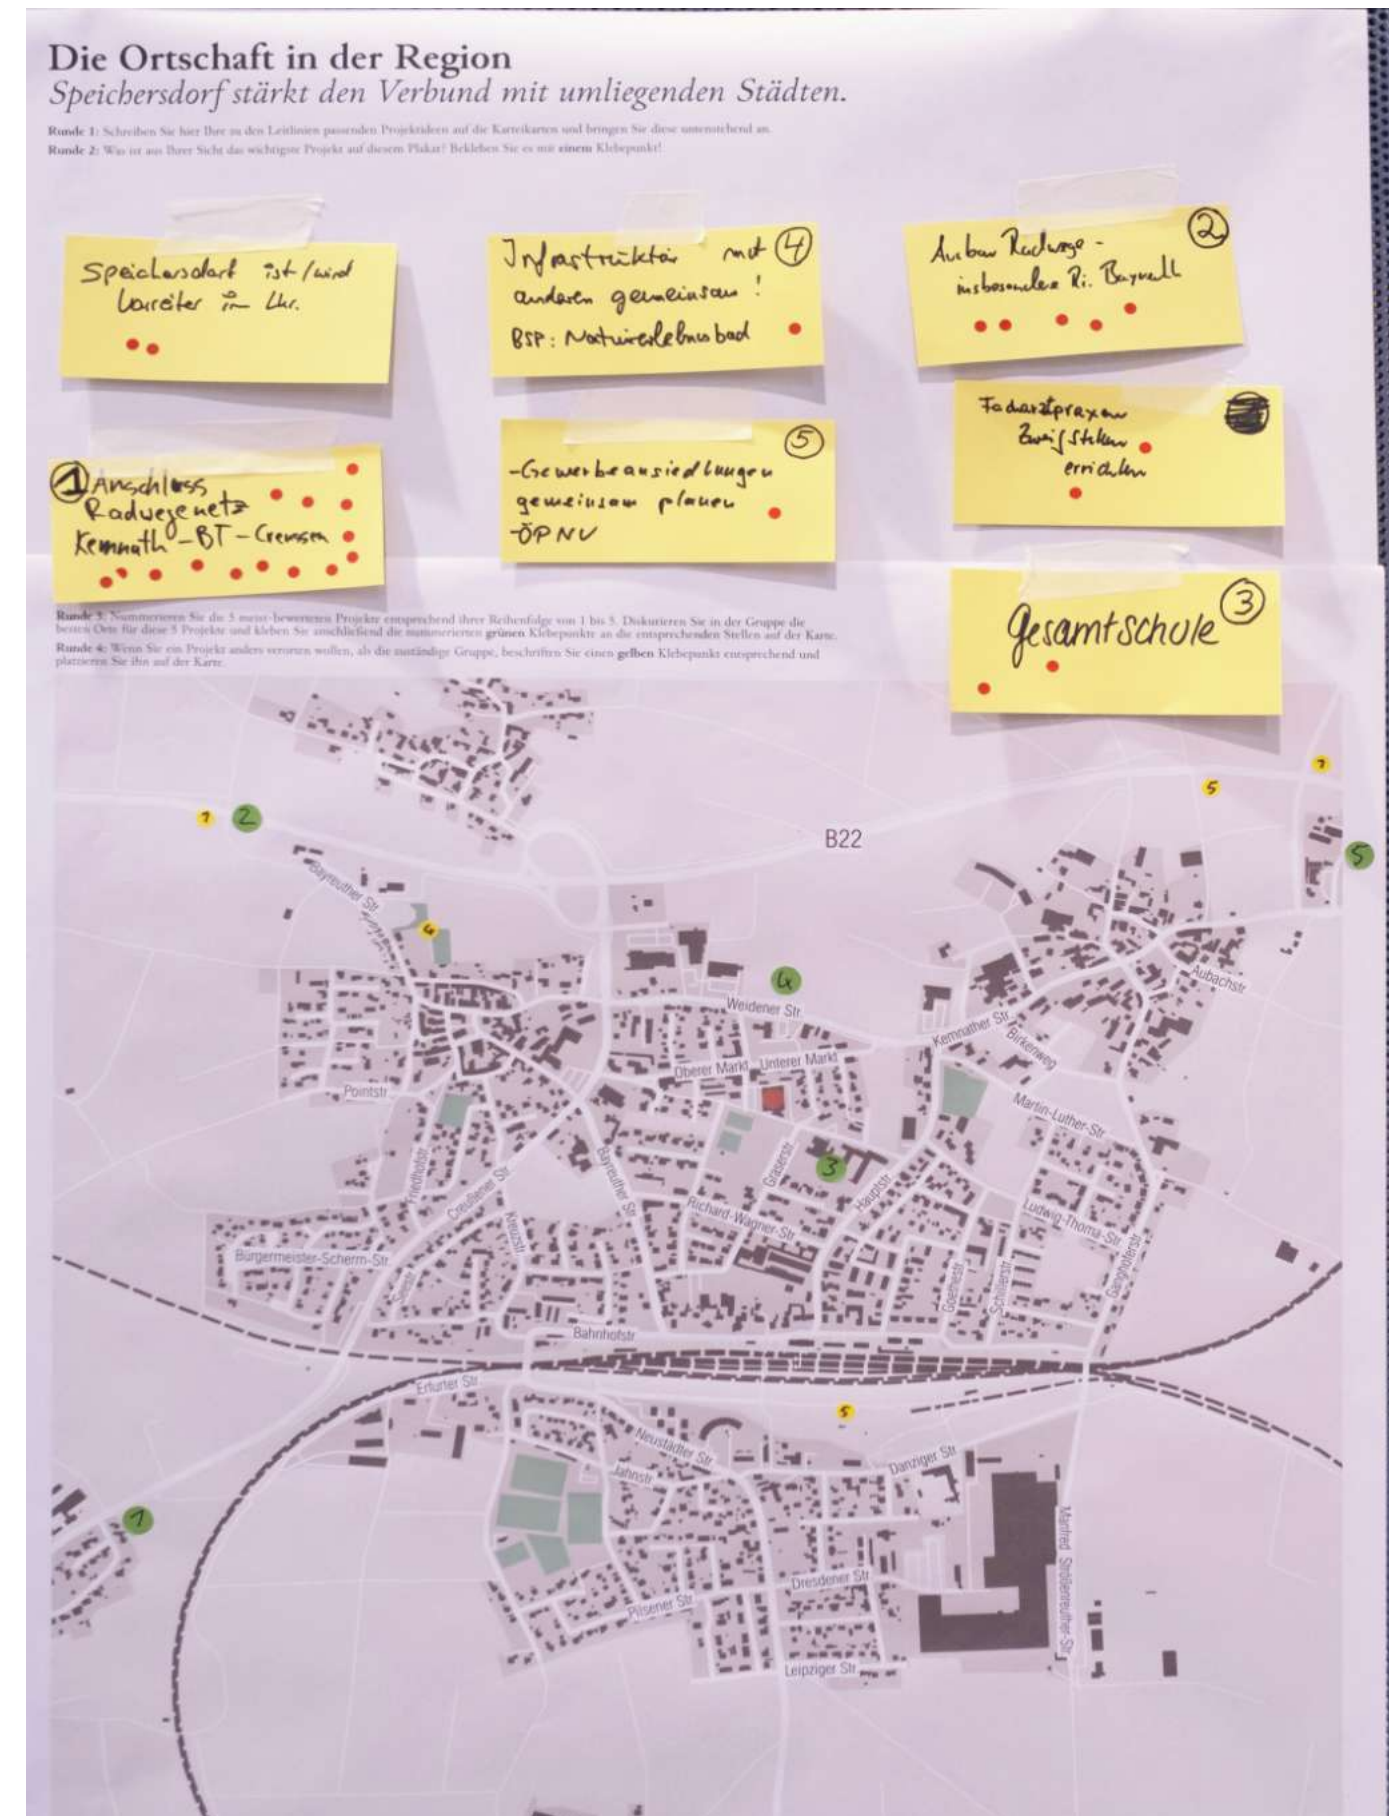 Die Ortschaft in der Region
Speichersdorf stärkt den Verbund mit umliegenden Städten.
Runde 1: Schreiben Sie hier Ihre zu den Leitlinien passenden Projektideen auf die Karteikarten und bringen Sie diese untenstehend an.
Runde 2: Was ist aus Ihrer Sicht das wichtigste Projekt auf diesem Plakat? Bekleben Sie es mit einem Klebepunkt!
Speichersdorf ist/wird
Vorreiter in
Infrastruktur mit 4
anderen gemeinsam!
BSP: Naturerlebnisbad
2
Ausbau Radwege -
insbesondere Ri. Bayreuth
1 Anschluss
Radwegenetz
Kemnath - BT - Creussen
5
- Gewerbeansiedlungen
gemeinsam planen
- ÖPNV
Facharztpraxen
Zweigstellen
errichten
Gesamtschule 3
Runde 3: Nummerieren Sie die 5 meist-bewerteten Projekte entsprechend ihrer Reihenfolge von 1 bis 5. Diskutieren Sie in der Gruppe die
besten Orte für diese 5 Projekte und kleben Sie anschließend die nummerierten grünen Klebepunkte an die entsprechenden Stellen auf der Karte.
Runde 4: Wenn Sie ein Projekt anders verorten wollen, als die zuständige Gruppe, beschriften Sie einen gelben Klebepunkt entsprechend und
platzieren Sie ihn auf der Karte.
1
5
1
2
B22
5
Bayreuther Str.
4
4
Aubachstr.
Weidener Str.
Kemnather Str.
Birkenweg
Oberer Markt
Unterer Markt
Pointstr.
Martin-Luther-Str.
3
Friedhofstr.
Creußener Str.
Bayreuther Str.
Glaserstr.
Hauptstr.
Richard-Wagner-Str.
Ludwig-Thoma-Str.
Kreuzstr.
Bürgermeister-Scherm-Str.
Seestr.
Goethestr.
Schillerstr.
Ganghoferstr.
Bahnhofstr.
Erfurter Str.
5
Neustädter Str.
Jahnstr.
Danziger Str.
1
Dresdener Str.
Pilsener Str.
Manfred Strößenreuther-Str.
Leipziger Str.